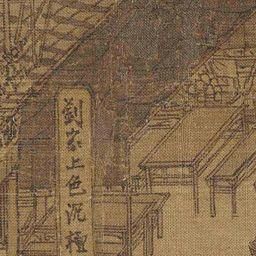 劉家上色沉檀